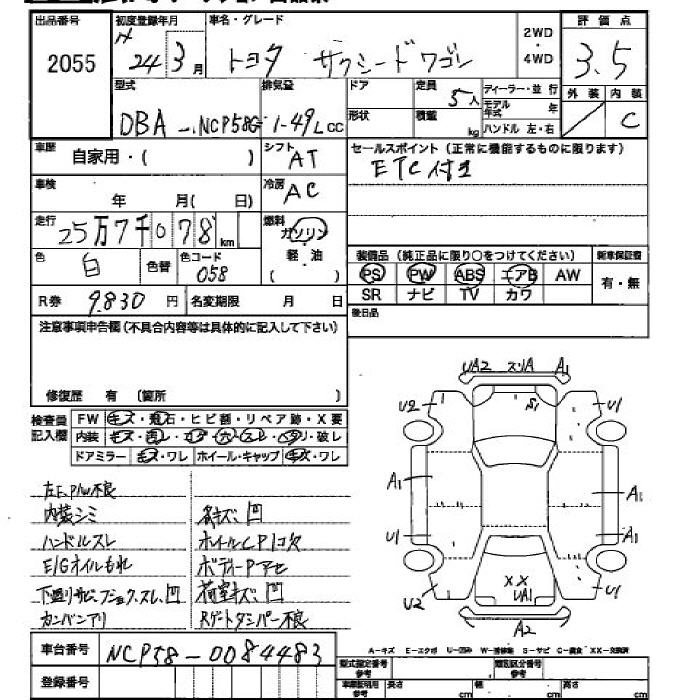 出品番号 初度登録年月 車名・グレード 2WD・4WD 評価点
2055 H 24 3月 トヨタ サクシードワゴン 3.5
型式 排気量 ドア 定員 5人 ディーラー・並行 外装 内装
DBA - NCP58G 1.49 L cc 形状 積載 kg モデル年式 年 ハンドル 左・右 C
車歴 自家用・( ) シフト AT セールスポイント (正常に機能するものに限ります)
ETC付き
車検 年 月( 日) 冷房 AC
走行 25万7千078 km 燃料 ガソリン
軽・油
( )
色 白 色替 色コード 058
装備品 (純正品に限り○をつけてください) 新車保証書
PS PW ABS エアB AW 有・無
SR ナビ TV カワ
R券 9830円 名変期限 月 日 後日品
注意事項申告欄 (不具合内容等は具体的に記入して下さい)
修復歴 有 〔箇所 〕
検査員記入欄 FW キズ・飛石・ヒビ割・リペア跡・X要
内装
ドアミラー キズ・ワレ ホイール・キャップ キズ・ワレ
UA2 スリA A1
U2 S1 U1
A1 A1
U1 A1
U2 XX UA1 U1
A2
左F.P/W不良
内装シミ 各キズ、凹
ハンドルスレ
E/Gオイルもれ
荷室キズ、凹
カンバンアリ
A-キズ E-エクボ U-凹み W-補修跡 S-サビ C-腐食 XX-交換済
車台番号 NCP58-0084483
登録番号
型式指定番号 参考 類別区分番号 参考
車庫証明用 参考 長さ cm 幅 cm 高さ cm